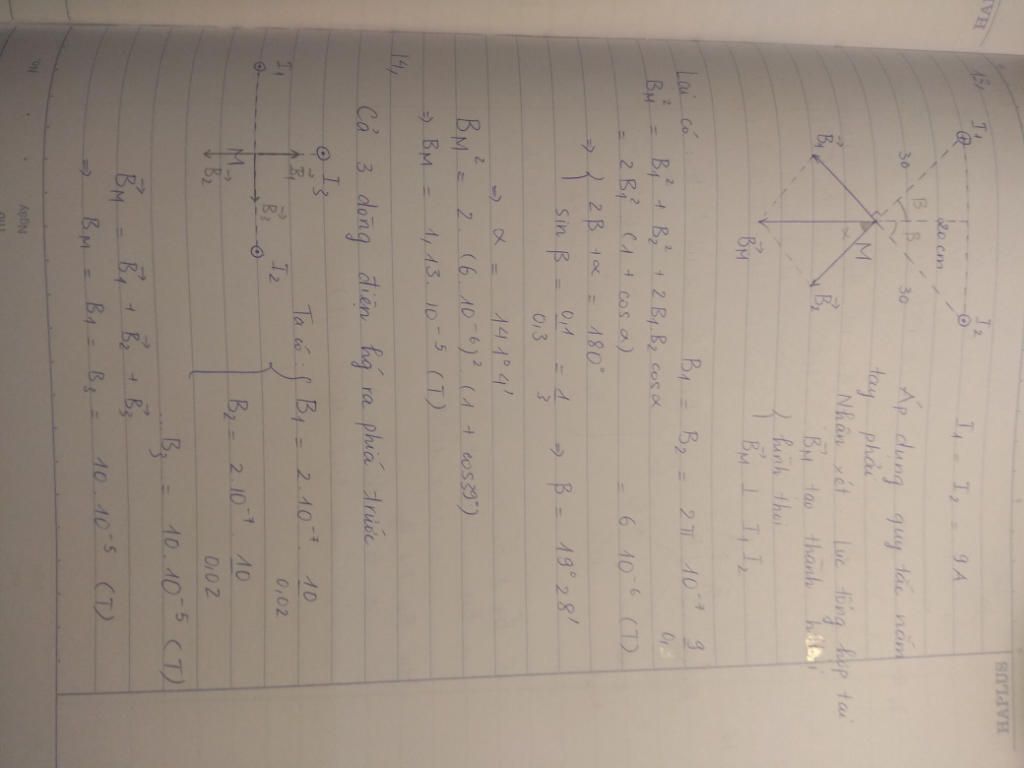 HAPLUS
I1
I2
I1 = I2 = 9A
20cm
30
30
β
β
M
α
B⃗1
B⃗2
B⃗M
Áp dụng quy tắc nắm
tay phải
Nhận xét Lực tổng hợp tại
B⃗M tạo thành
{ hình thoi
B⃗M ⊥ I1I2
B1 = B2 = 2π 10⁻⁷ 9
= 6 10⁻⁶ (T)
Lại có
BM² = B1² + B2² + 2B1B2 cosα
= 2B1² (1 + cosα)
⇒ { 2β + α = 180°
sin β = 0,1/0,3 = 1/3 ⇒ β = 19°28'
⇒ α = 141°4'
BM² = 2. (6.10⁻⁶)² (1 + cos39°)
⇒ BM = 1,13. 10⁻⁵ (T)
14,
Cả 3 dòng điện hg ra phía trước
I1
I3
I2
M
B⃗1
B⃗3
B⃗2
Ta có: { B1 = 2.10⁻⁷. 10/0,02
B2 = 2.10⁻⁷. 10/0,02
B3 = 10.10⁻⁵ (T)
B⃗M = B⃗1 + B⃗2 + B⃗3
⇒ BM = B1 = B3 = 10.10⁻⁵ (T)
HAPLUS